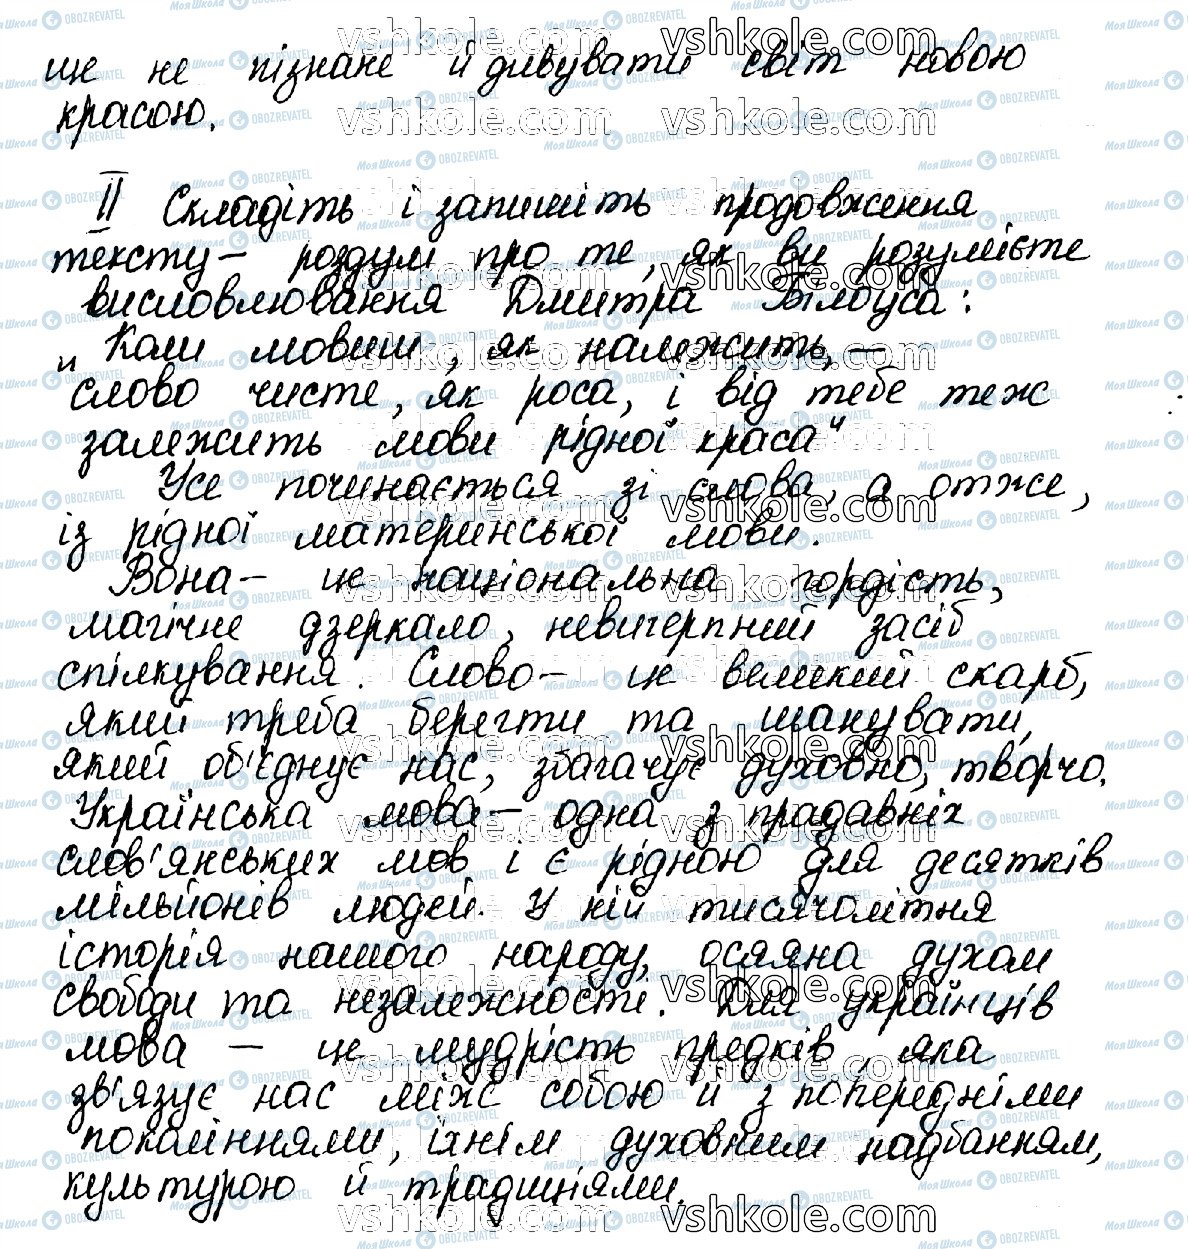 ще не пізнане й дивувати світ новою
красою.
II Складіть і запишіть продовження
тексту – роздум про те, як ви розумієте
висловлювання Дмитра Білоуса:
„Коли мовиш, як належить, –
слово чисте, як роса, і від тебе теж
залежить мови рідної краса"
Усе починається зі слова, а отже,
із рідної материнської мови.
Вона – це національна гордість,
магічне дзеркало, невичерпний засіб
спілкування. Слово – це великий скарб,
який треба берегти та шанувати,
який об'єднує нас, збагачує духовно, творчо.
Українська мова – одна з прадавніх
слов'янських мов і є рідною для десятків
мільйонів людей. У ній тисячолітня
історія нашого народу, осяяна духом
свободи та незалежності. Для українців
мова – це мудрість предків яка
зв'язує нас між собою й з попередніми
поколіннями, їхнім духовним надбанням,
культурою й традиціями.